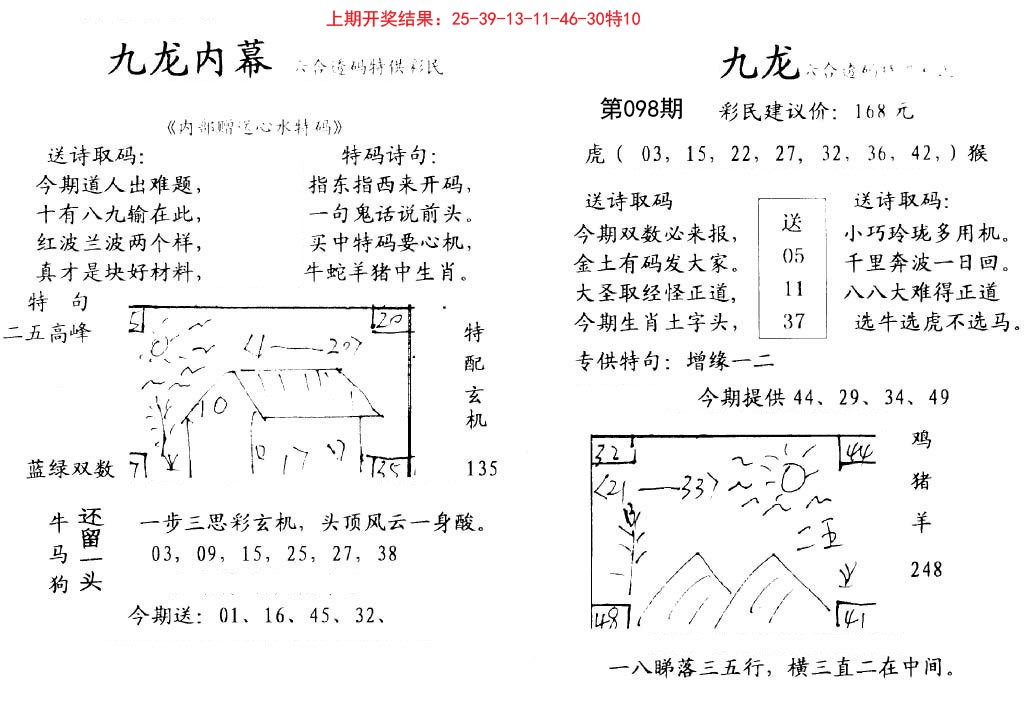 上期开奖结果：25-39-13-11-46-30特10
九龙内幕 六合透码特供彩民
《内部赠送心水特码》
送诗取码：
今期道人出难题，
十有八九输在此，
红波兰波两个样，
真才是块好材料，
特码诗句：
指东指西来开码，
一句鬼话说前头。
买中特码要心机，
牛蛇羊猪中生肖。
特 句
二五高峰
蓝绿双数
5
20
〈1——20〉
10
0 17 17
7
35
特配玄机
135
牛马狗
还留一头
一步三思彩玄机，头顶风云一身酸。
03，09，15，25，27，38
今期送：01、16、45、32、
九龙 六合透码特
第098期 彩民建议价：168元
虎（ 03，15，22，27，32，36，42，）猴
送诗取码
今期双数必来报，
金土有码发大家。
大圣取经怪正道，
今期生肖土字头，
送
05
11
37
送诗取码：
小巧玲珑多用机。
千里奔波一日回。
八八大难得正道
选牛选虎不选马。
专供特句：增缘一二
今期提供44、29、34、49
32
44
〈21——33〉
二五
48
41
鸡
猪
羊
248
一八睇落三五行，横三直二在中间。